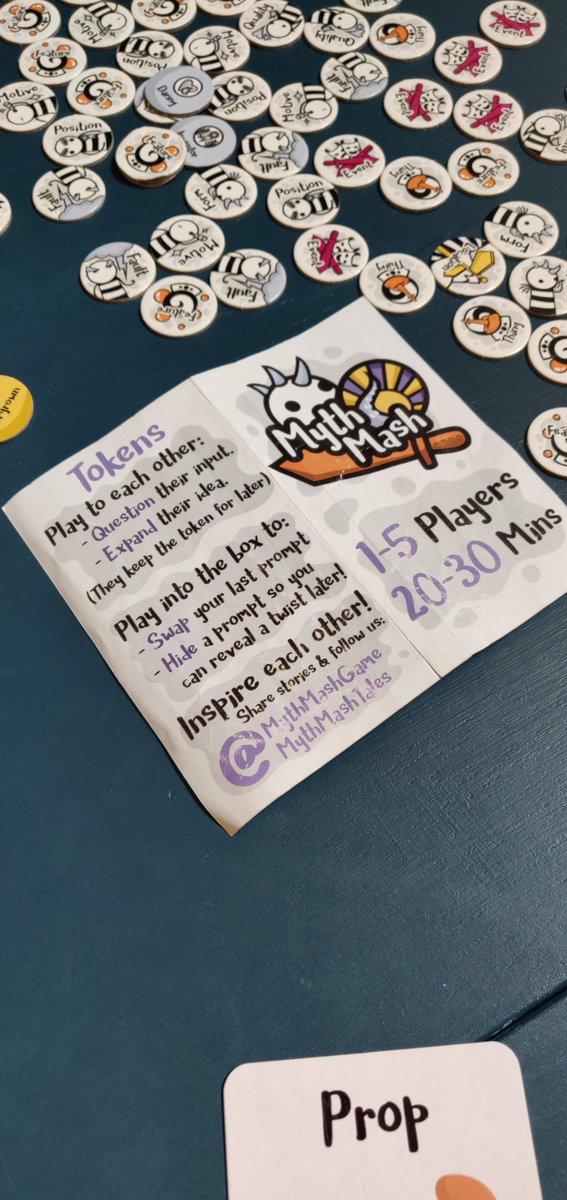 Feature
Motive
Quality
Thing
Event
Motive
Feature
Position
Motive
Fault
Event
Motive
Feature
Position
Motive
Event
Event
Position
Feature
Fault
Event
Thing
Feature
Fault
Form
Position
Form
Fault
Motive
Fault
Event
Thing
Feature
Thing
Tokens
Play to each other:
- Question their input.
- Expand their idea.
(They keep the token for later)
Play into the box to:
- Swap your last prompt
- Hide a prompt so you
can reveal a twist later!
Inspire each other!
Share stories & follow us:
@MythMashGame
MythMashTales
Myth
Mash
1-5 Players
20-30 Mins
Prop